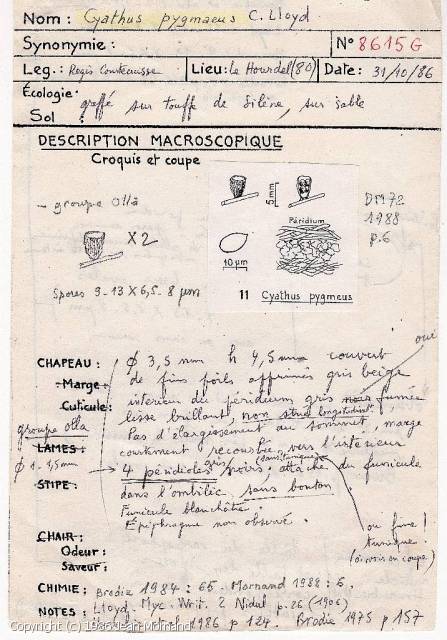 Nom: Cyathus pygmaeus C. Lloyd
Synonymie: N° 8615G
Leg.: Régis Courtecuisse Lieu: le Hourdel (80) Date: 31/10/86
Écologie: greffé sur touffe de Silène, sur sable
Sol
DESCRIPTION MACROSCOPIQUE
Croquis et coupe
- groupe Olla
X2
Spores 9-13 X 6,5-8 µm
5mm
Péridium
10 µm
11 Cyathus pygmeus
DM72
1988
p.6
CHAPEAU: ϕ 3,5 mm h 4,5 mm couvert
oui
Marge: de fins poils apprimés gris beige
Cuticule: intérieur du péridium gris noir fumée
lisse brillant, non strié longitudinalt
groupe olla
Pas d'élargissement au sommet, marge
LAMES: courtement recourbée vers l'intérieur
ϕ 1-1,5mm → 4 péridioles gris noirs. attache du funicule
STIPE: dans l'ombilic sans bouton
Funicule blanchâtre.
Épiphragme non observé.
CHAIR:
Odeur:
Saveur:
ou fine!
tunique
(à voir en coupe)
CHIMIE: Brodie 1984: 65. Mornand 1988: 6.
NOTES: Lloyd. Myc. Writ. 2 Nidul p.26 (1906)
1986 p 124. Brodie 1975 p 157
Copyright (c) 1986 Jean Mornand